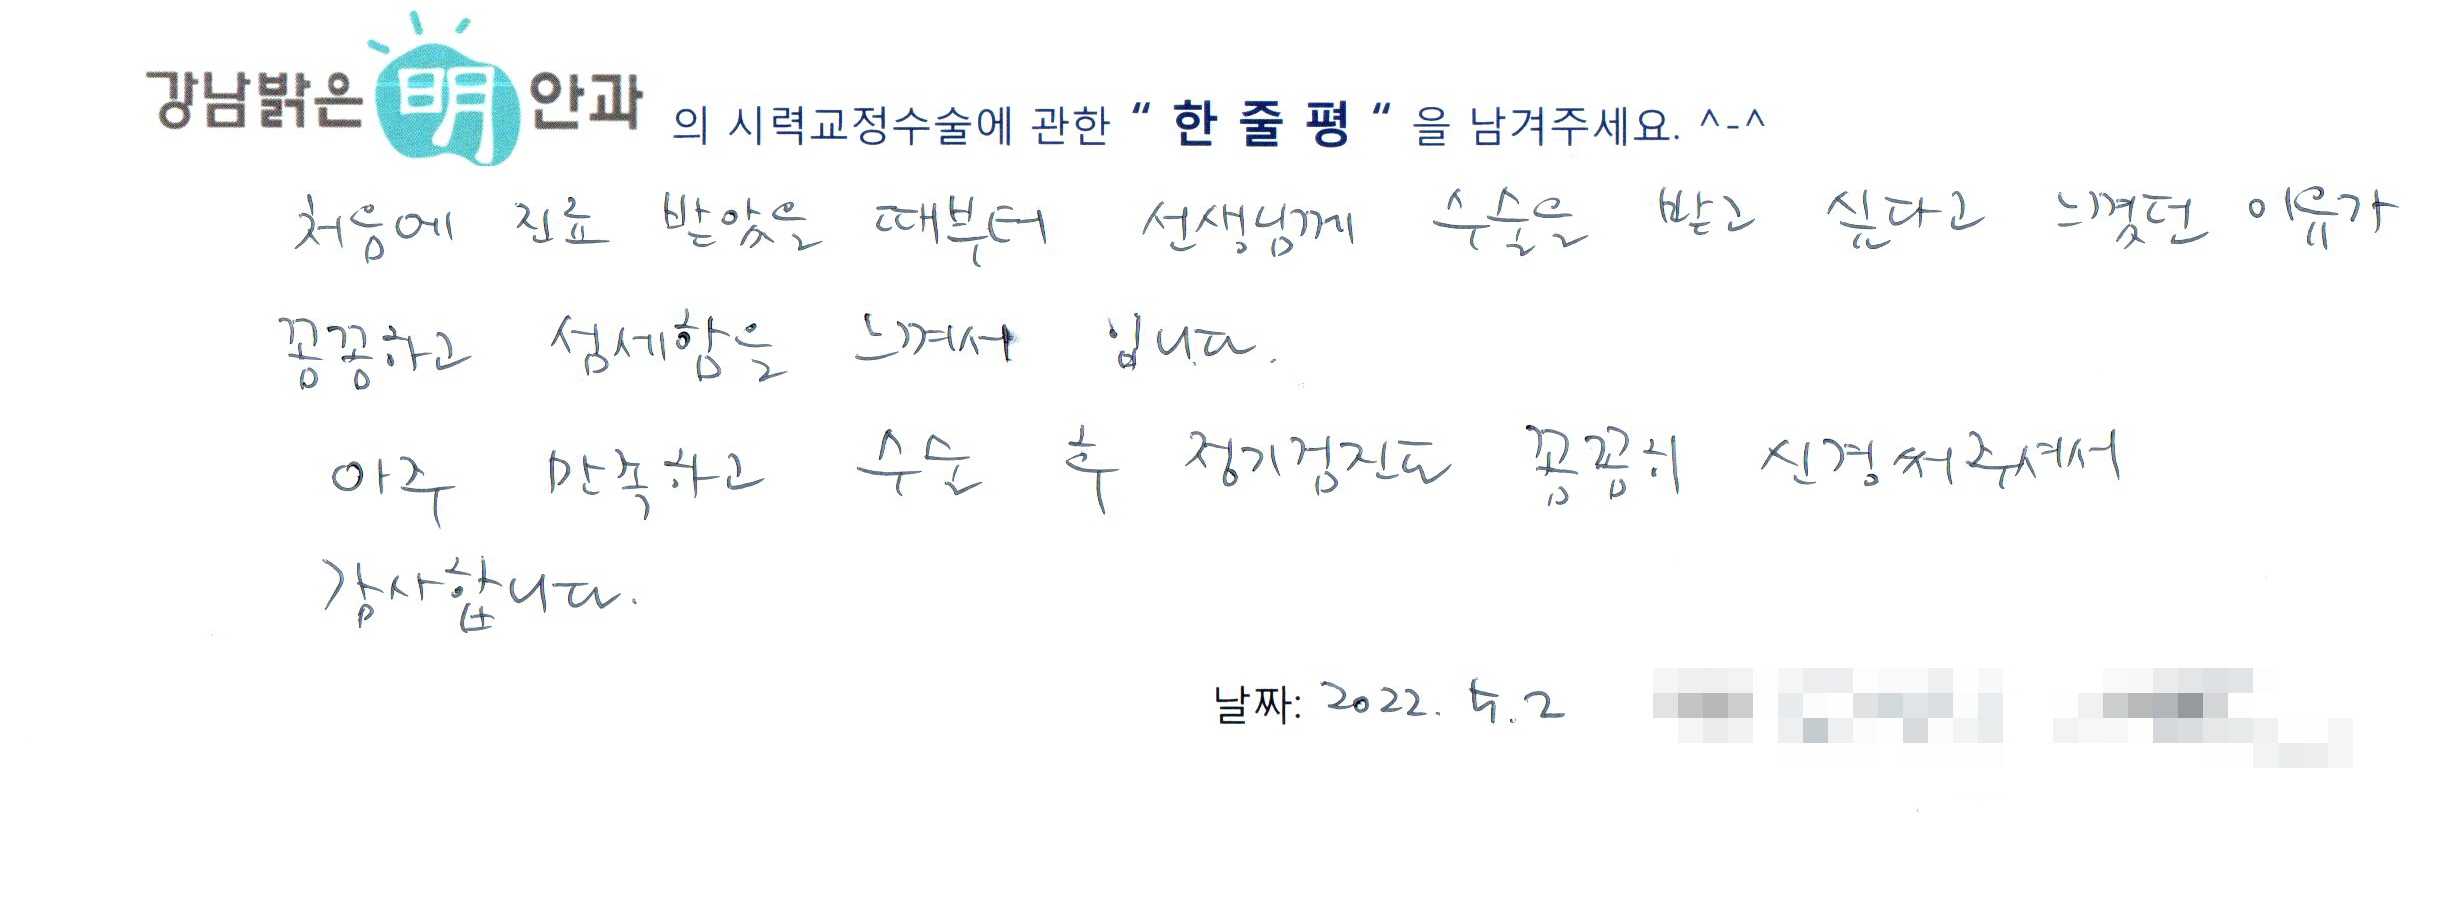 강남밝은 明 안과 의 시력교정수술에 관한 “ 한 줄 평 “ 을 남겨주세요. ^-^
처음에 진료 받았을 때부터 선생님께 수술을 받고 싶다고 느꼈던 이유가
꼼꼼하고 섬세함을 느껴서 입니다.
아주 만족하고 수술 후 정기검진도 꼼꼼히 신경써주셔서
감사합니다.
날짜: 2022. 5. 2